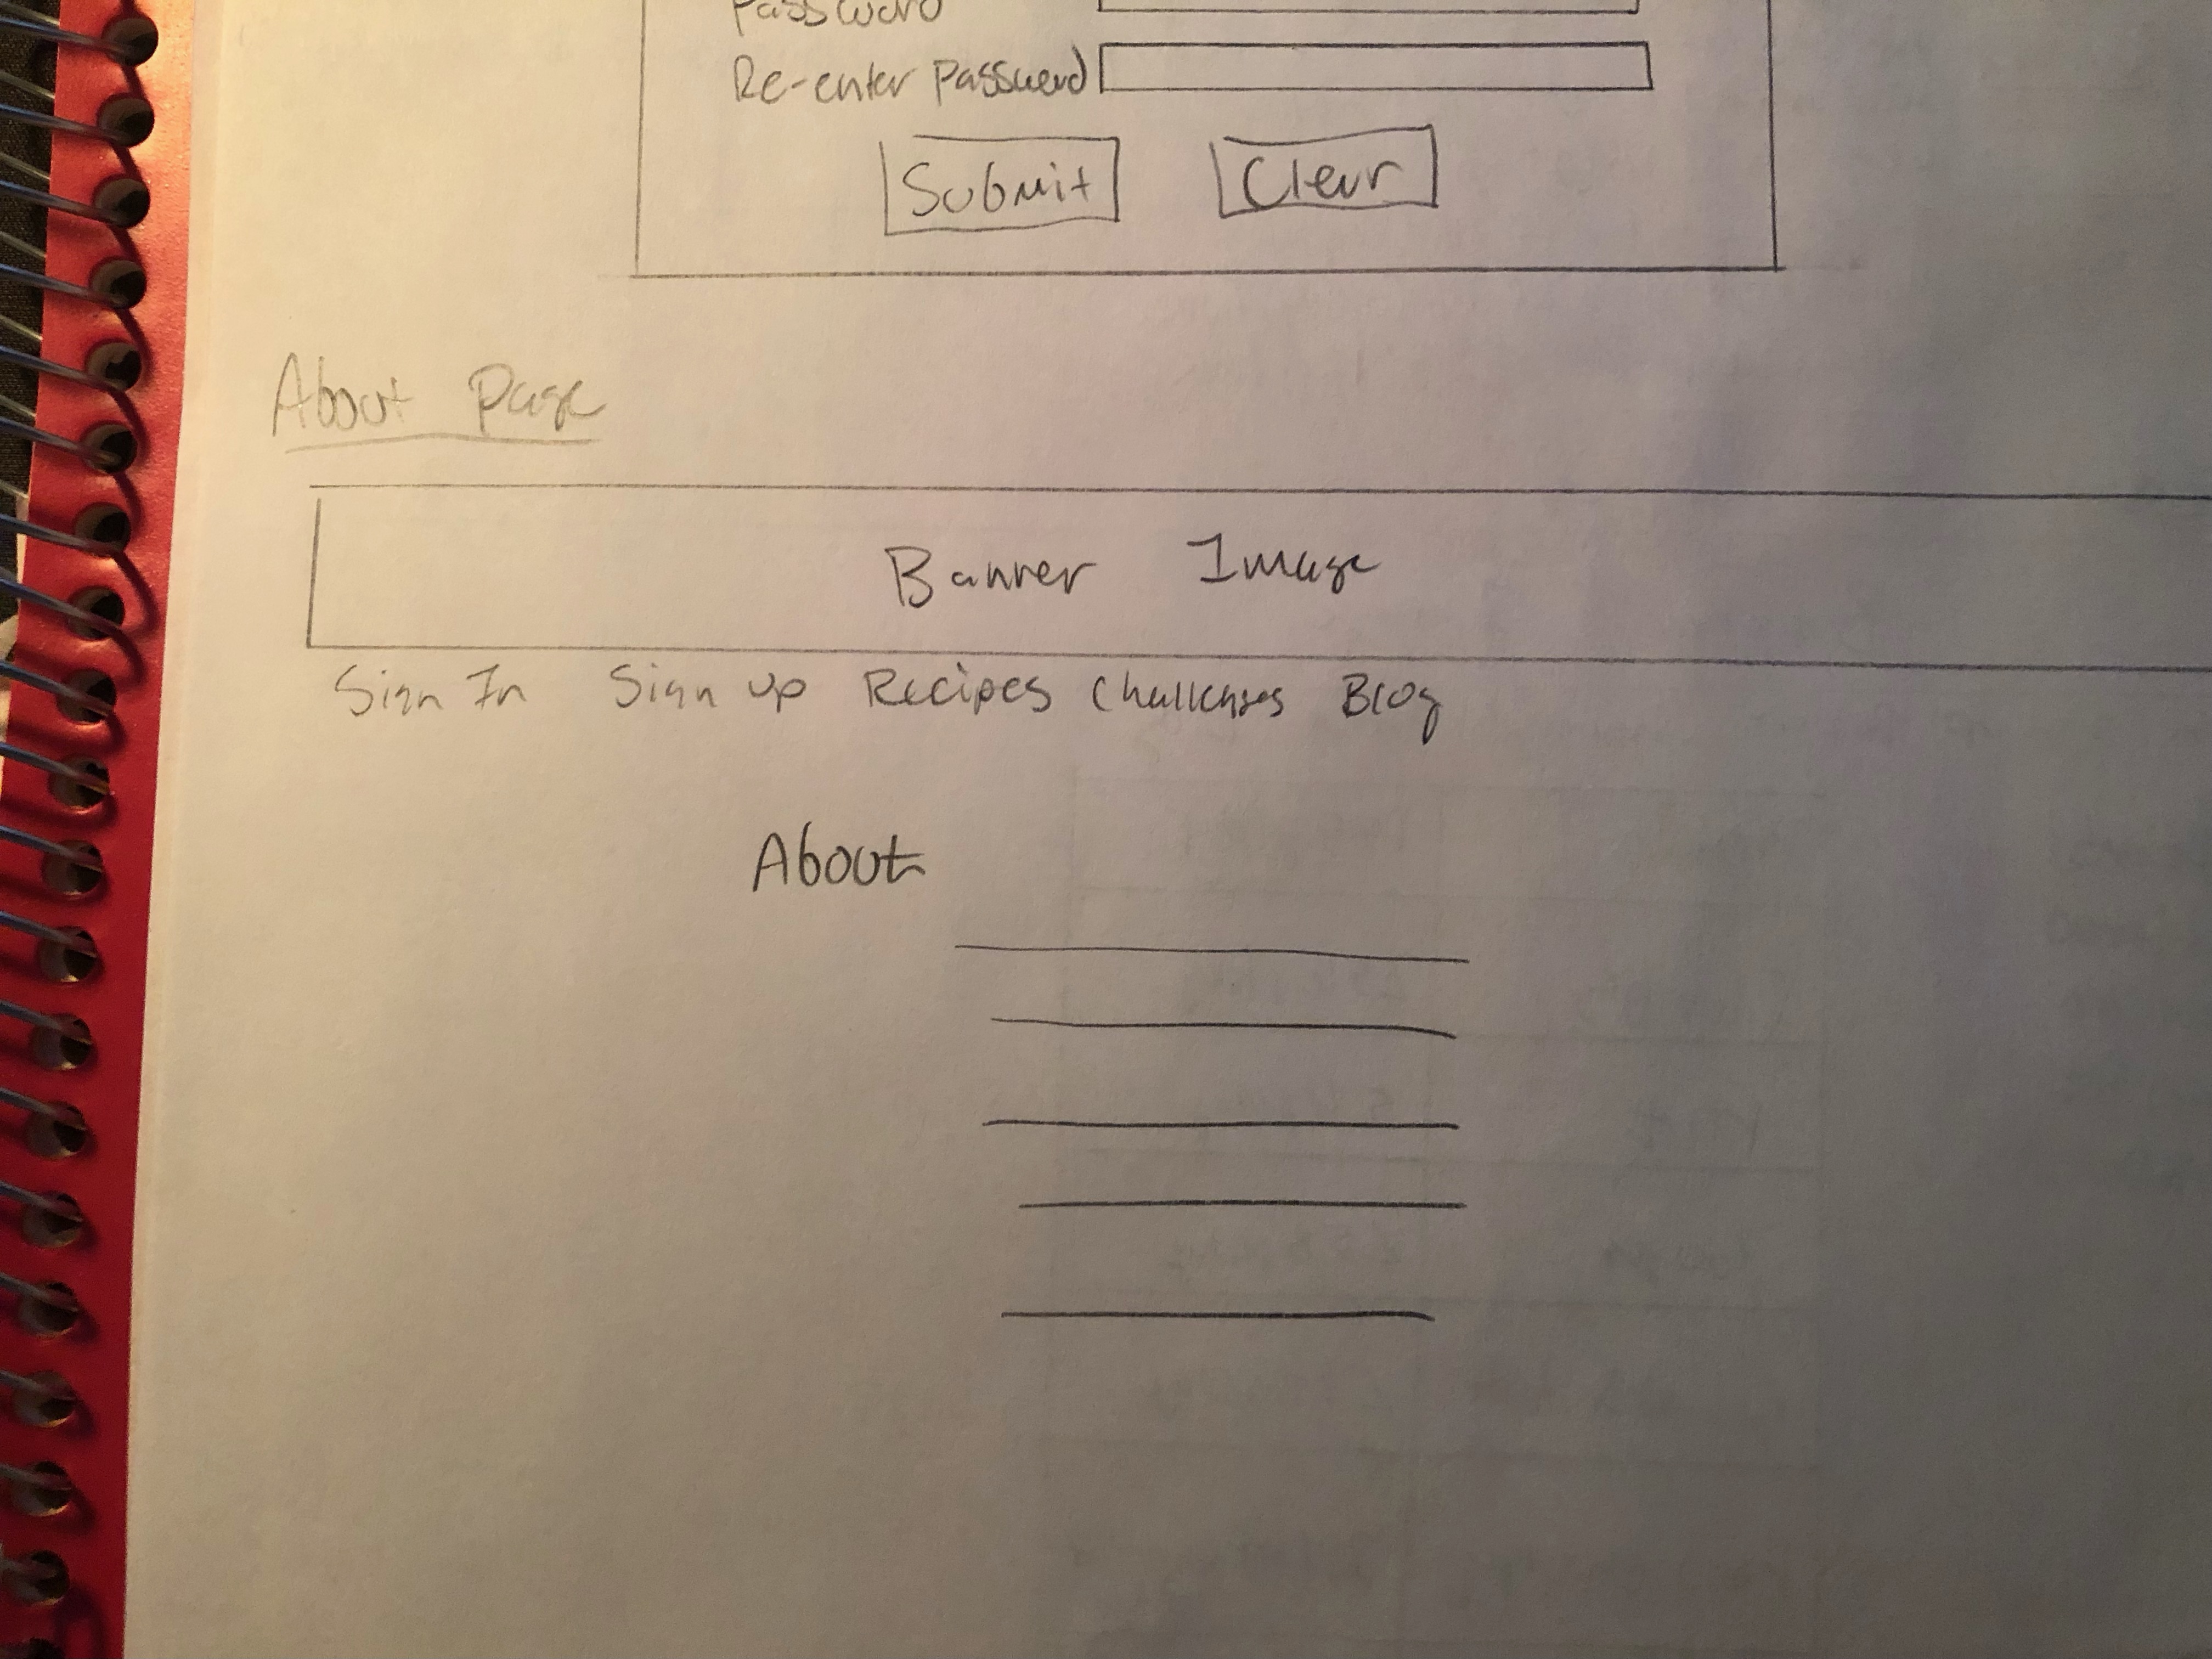 Password
Re-enter Password
Submit Clear
About Page
Banner Image
Sign In Sign up Recipes Challenges Blog
About